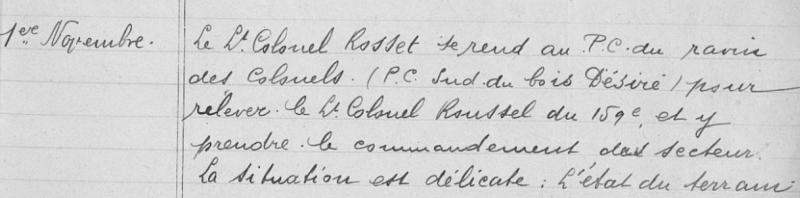 1ere Novembre. Le Lt Colonel Rosset se rend au P.C. du ravin
des Colonels. (P.C. Sud du bois Désiré) pour
relever le Lt Colonel Roussel du 159e, et y
prendre le commandement des secteur.
La situation est délicate : L'état du terrain